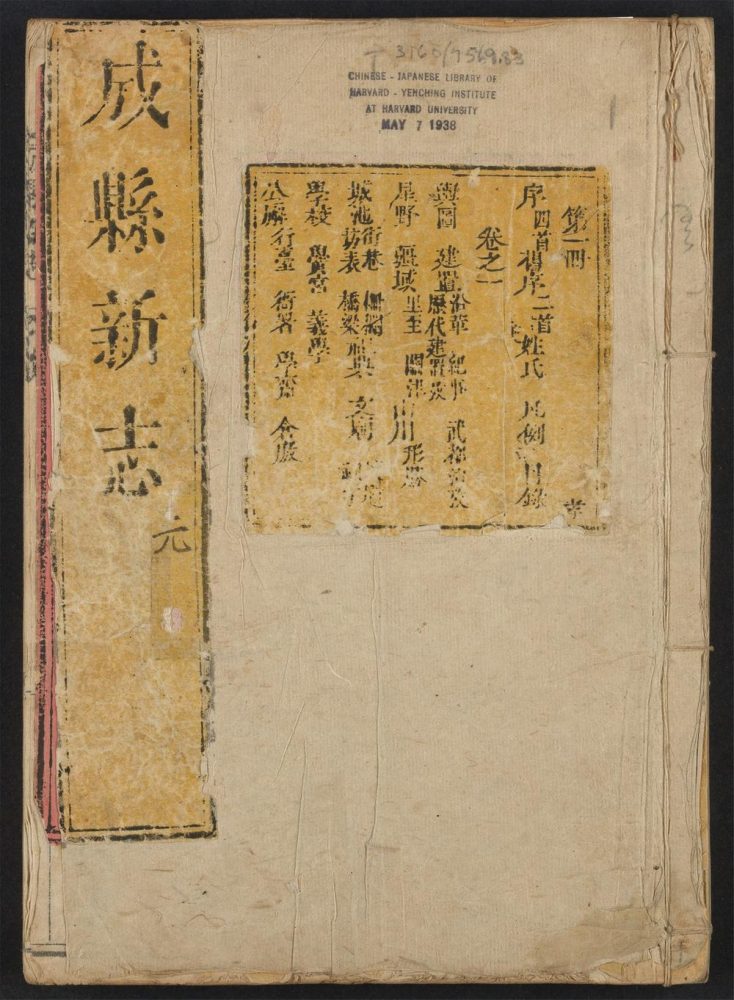 T 3160/7569.83
CHINESE - JAPANESE LIBRARY OF
HARVARD - YENCHING INSTITUTE
AT HARVARD UNIVERSITY
MAY 7 1938
成縣新志
元
第一冊
序四首 舊序二首 姓氏 凡例 目錄
卷之一
輿圖 建置 沿革 紀事
歷代建置
星野 疆域 里至 關津 山川 形勝
城池 街巷 坊表 橋梁 祀典 文廟
學校 學宮 義學
公廨 行臺 衙署 學齋 倉廒